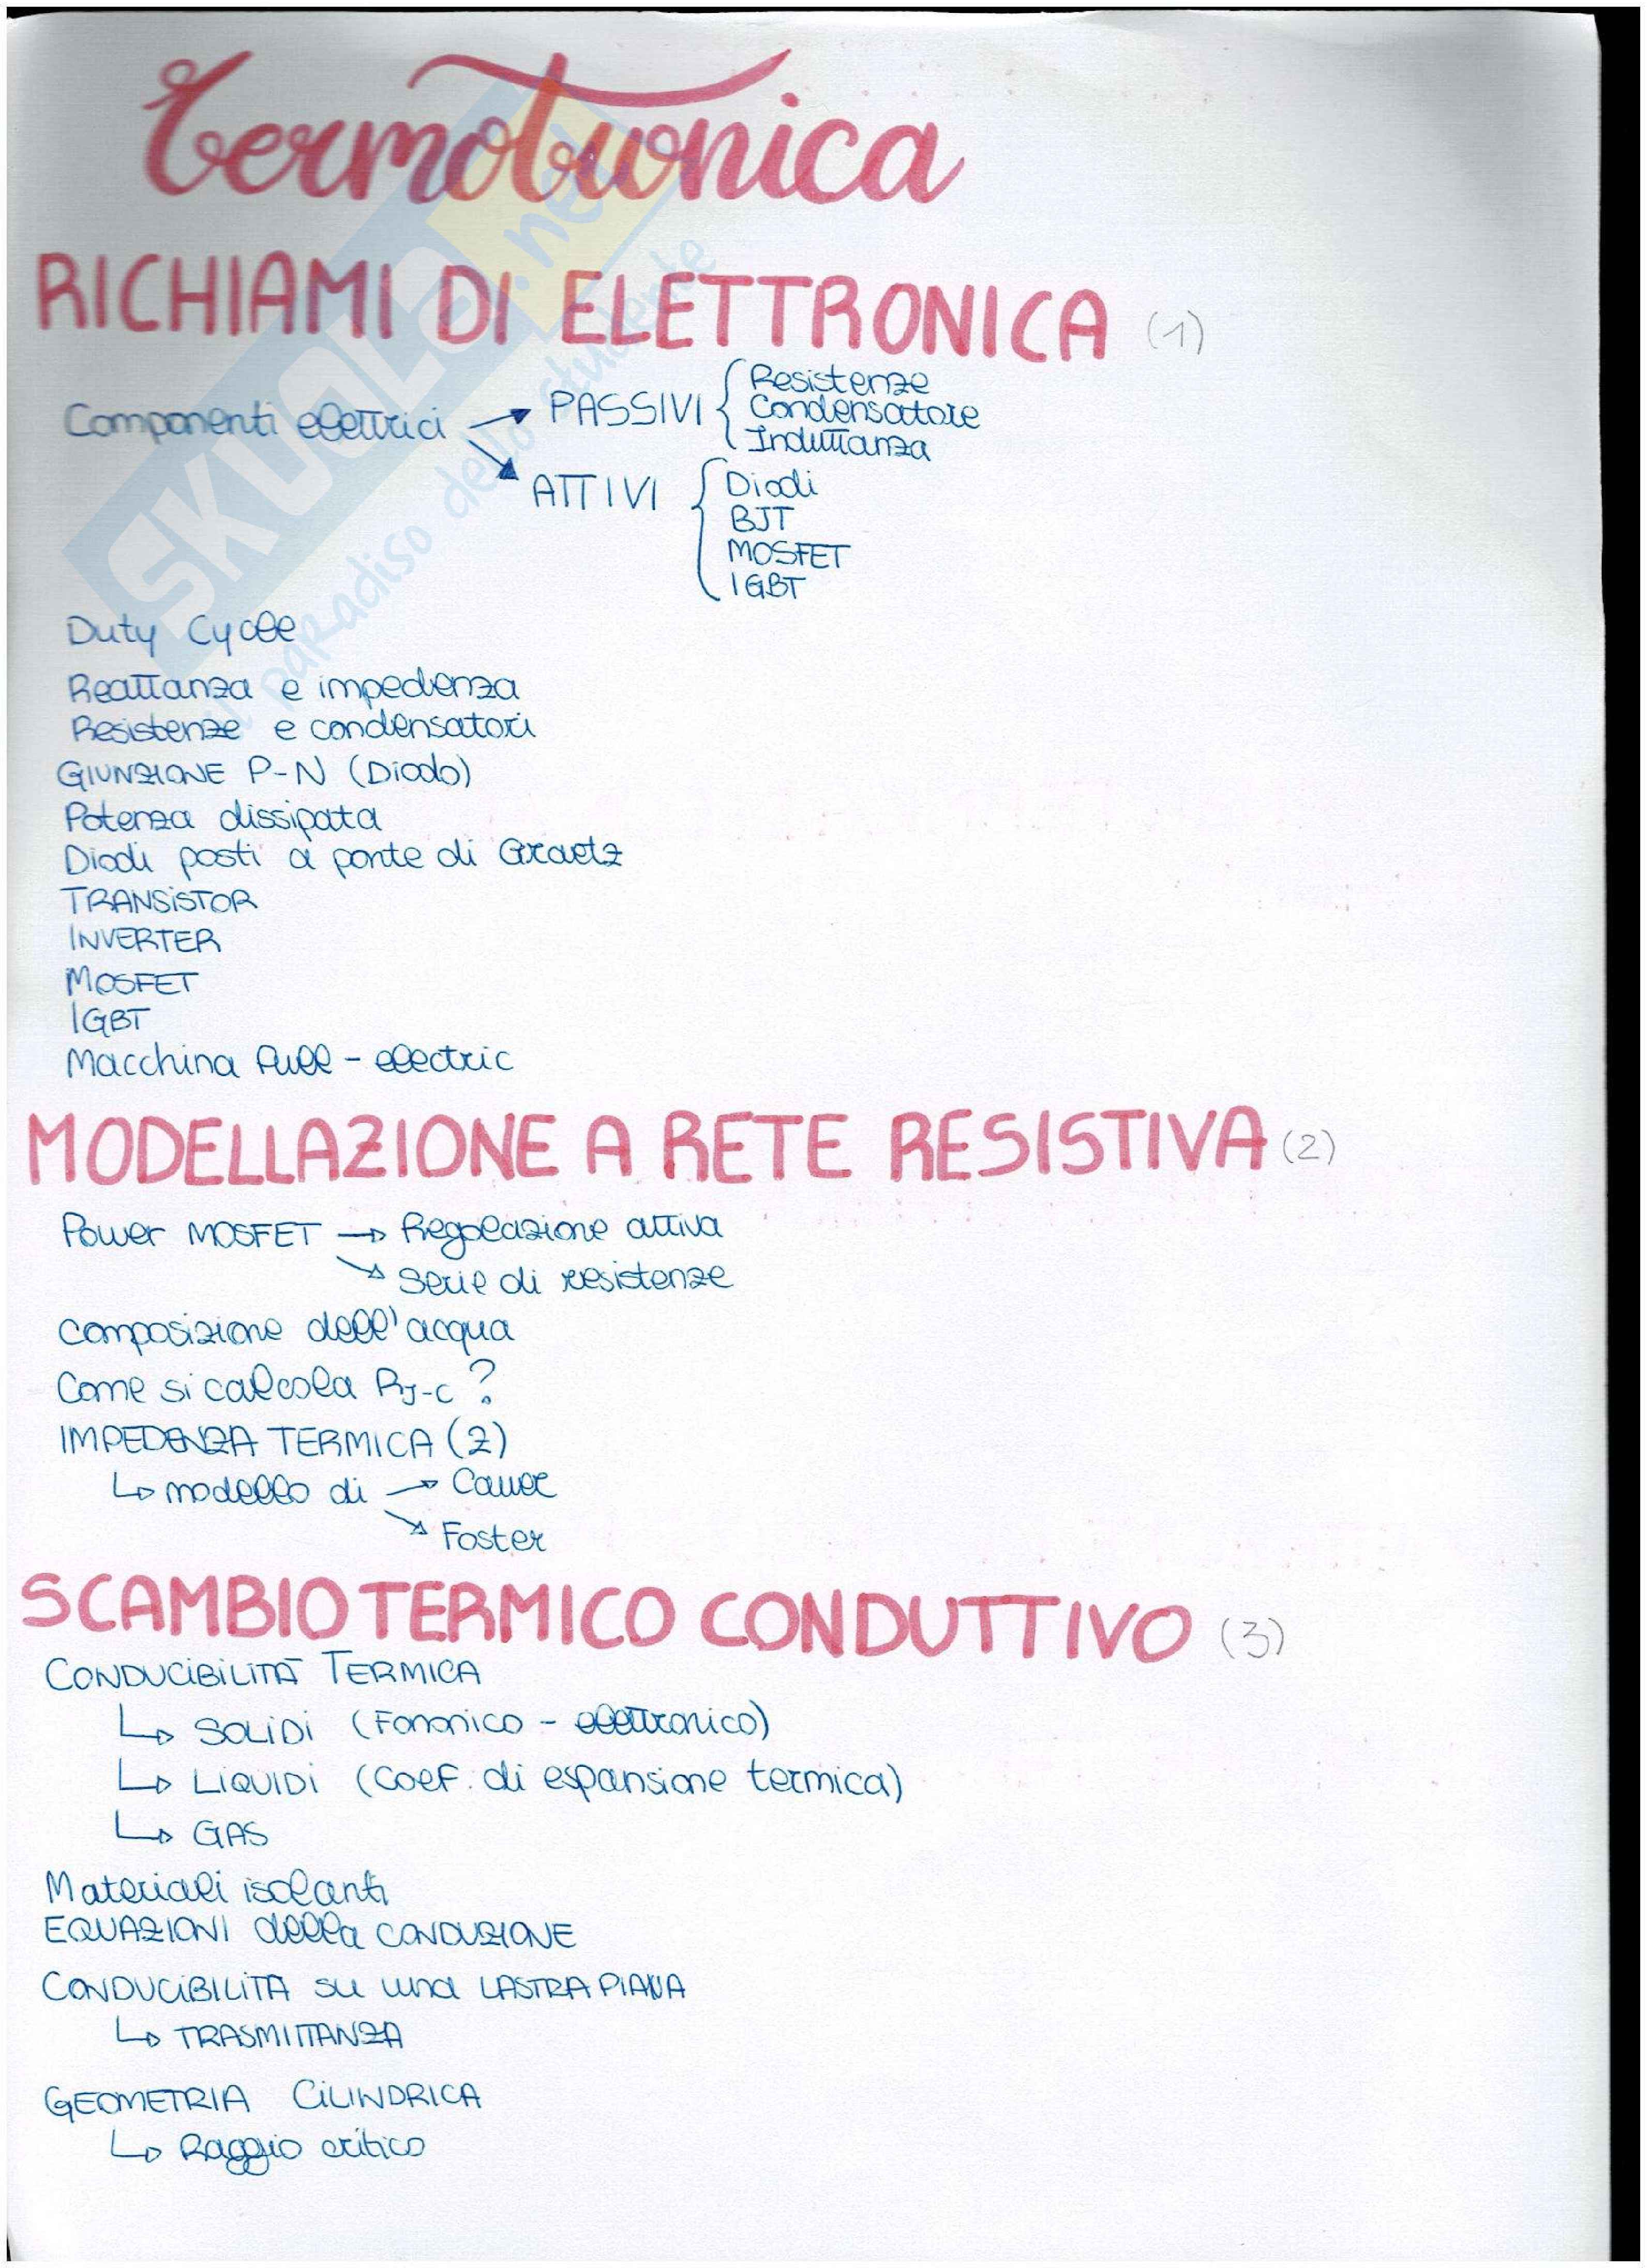 Termotronica
RICHIAMI DI ELETTRONICA (1)
Componenti elettrici → PASSIVI { Resistenze
Condensatore
Induttanza
ATTIVI { Diodi
BJT
MOSFET
IGBT
Duty Cycle
Reattanza e impedenza
Resistenze e condensatori
GIUNZIONE P-N (Diodo)
Potenza dissipata
Diodi posti a ponte di Graetz
TRANSISTOR
INVERTER
MOSFET
IGBT
Macchina full - electric
MODELLAZIONE A RETE RESISTIVA (2)
Power MOSFET → Regolazione attiva
Serie di resistenze
Composizione dell'acqua
Come si calcola RJ-C ?
IMPEDENZA TERMICA (Z)
↳ modello di → Cauer
↘ Foster
SCAMBIO TERMICO CONDUTTIVO (3)
CONDUCIBILITÀ TERMICA
↳ SOLIDI (Fononico - elettronico)
↳ LIQUIDI (Coef. di espansione termica)
↳ GAS
Materiali isolanti
EQUAZIONI della CONDUZIONE
CONDUCIBILITA su una LASTRA PIANA
↳ TRASMITTANZA
GEOMETRIA CILINDRICA
↳ Raggio critico
SKUOLA.net
il paradiso dello studente